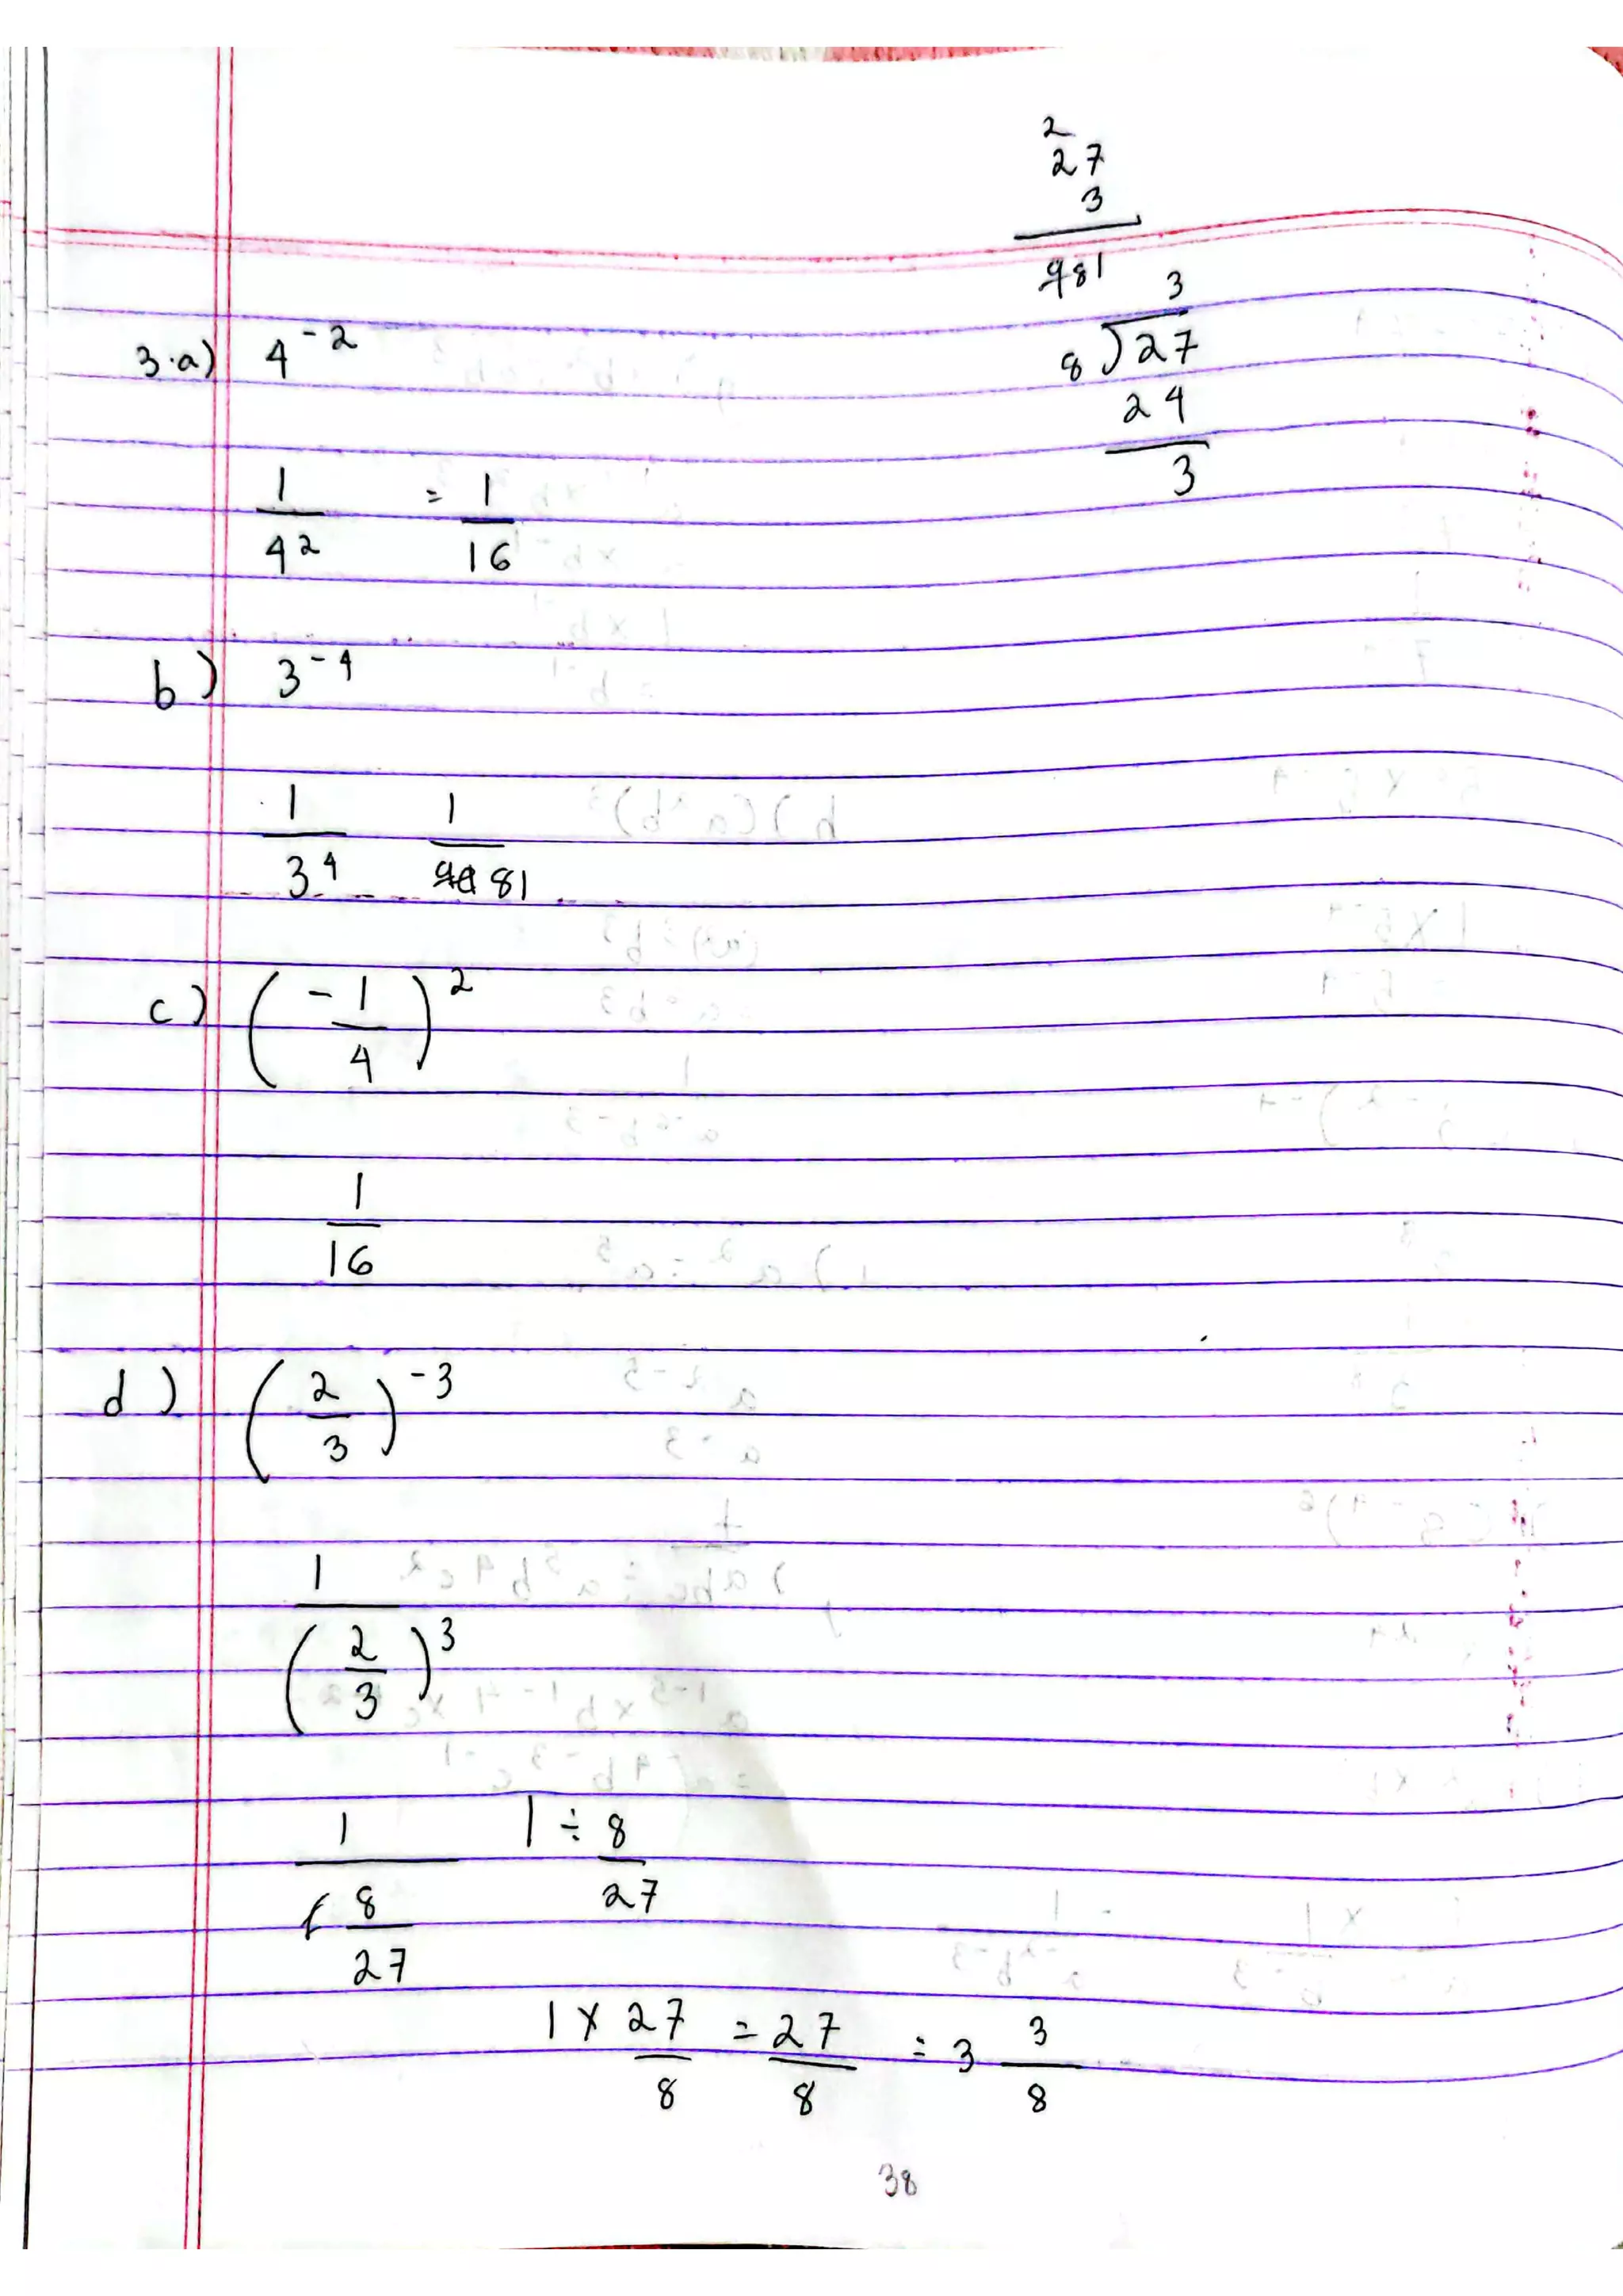 2
27
3
981
3
8)27
24
3
3.a) 4^-2
1/4^2 = 1/16
b) 3^-4
1/3^4 1/81
c) (-1/4)^2
1/16
d) (2/3)^-3
1/(2/3)^3
1/(8/27 1 ÷ 8/27
1 × 27/8 = 27/8 = 3 3/8
38